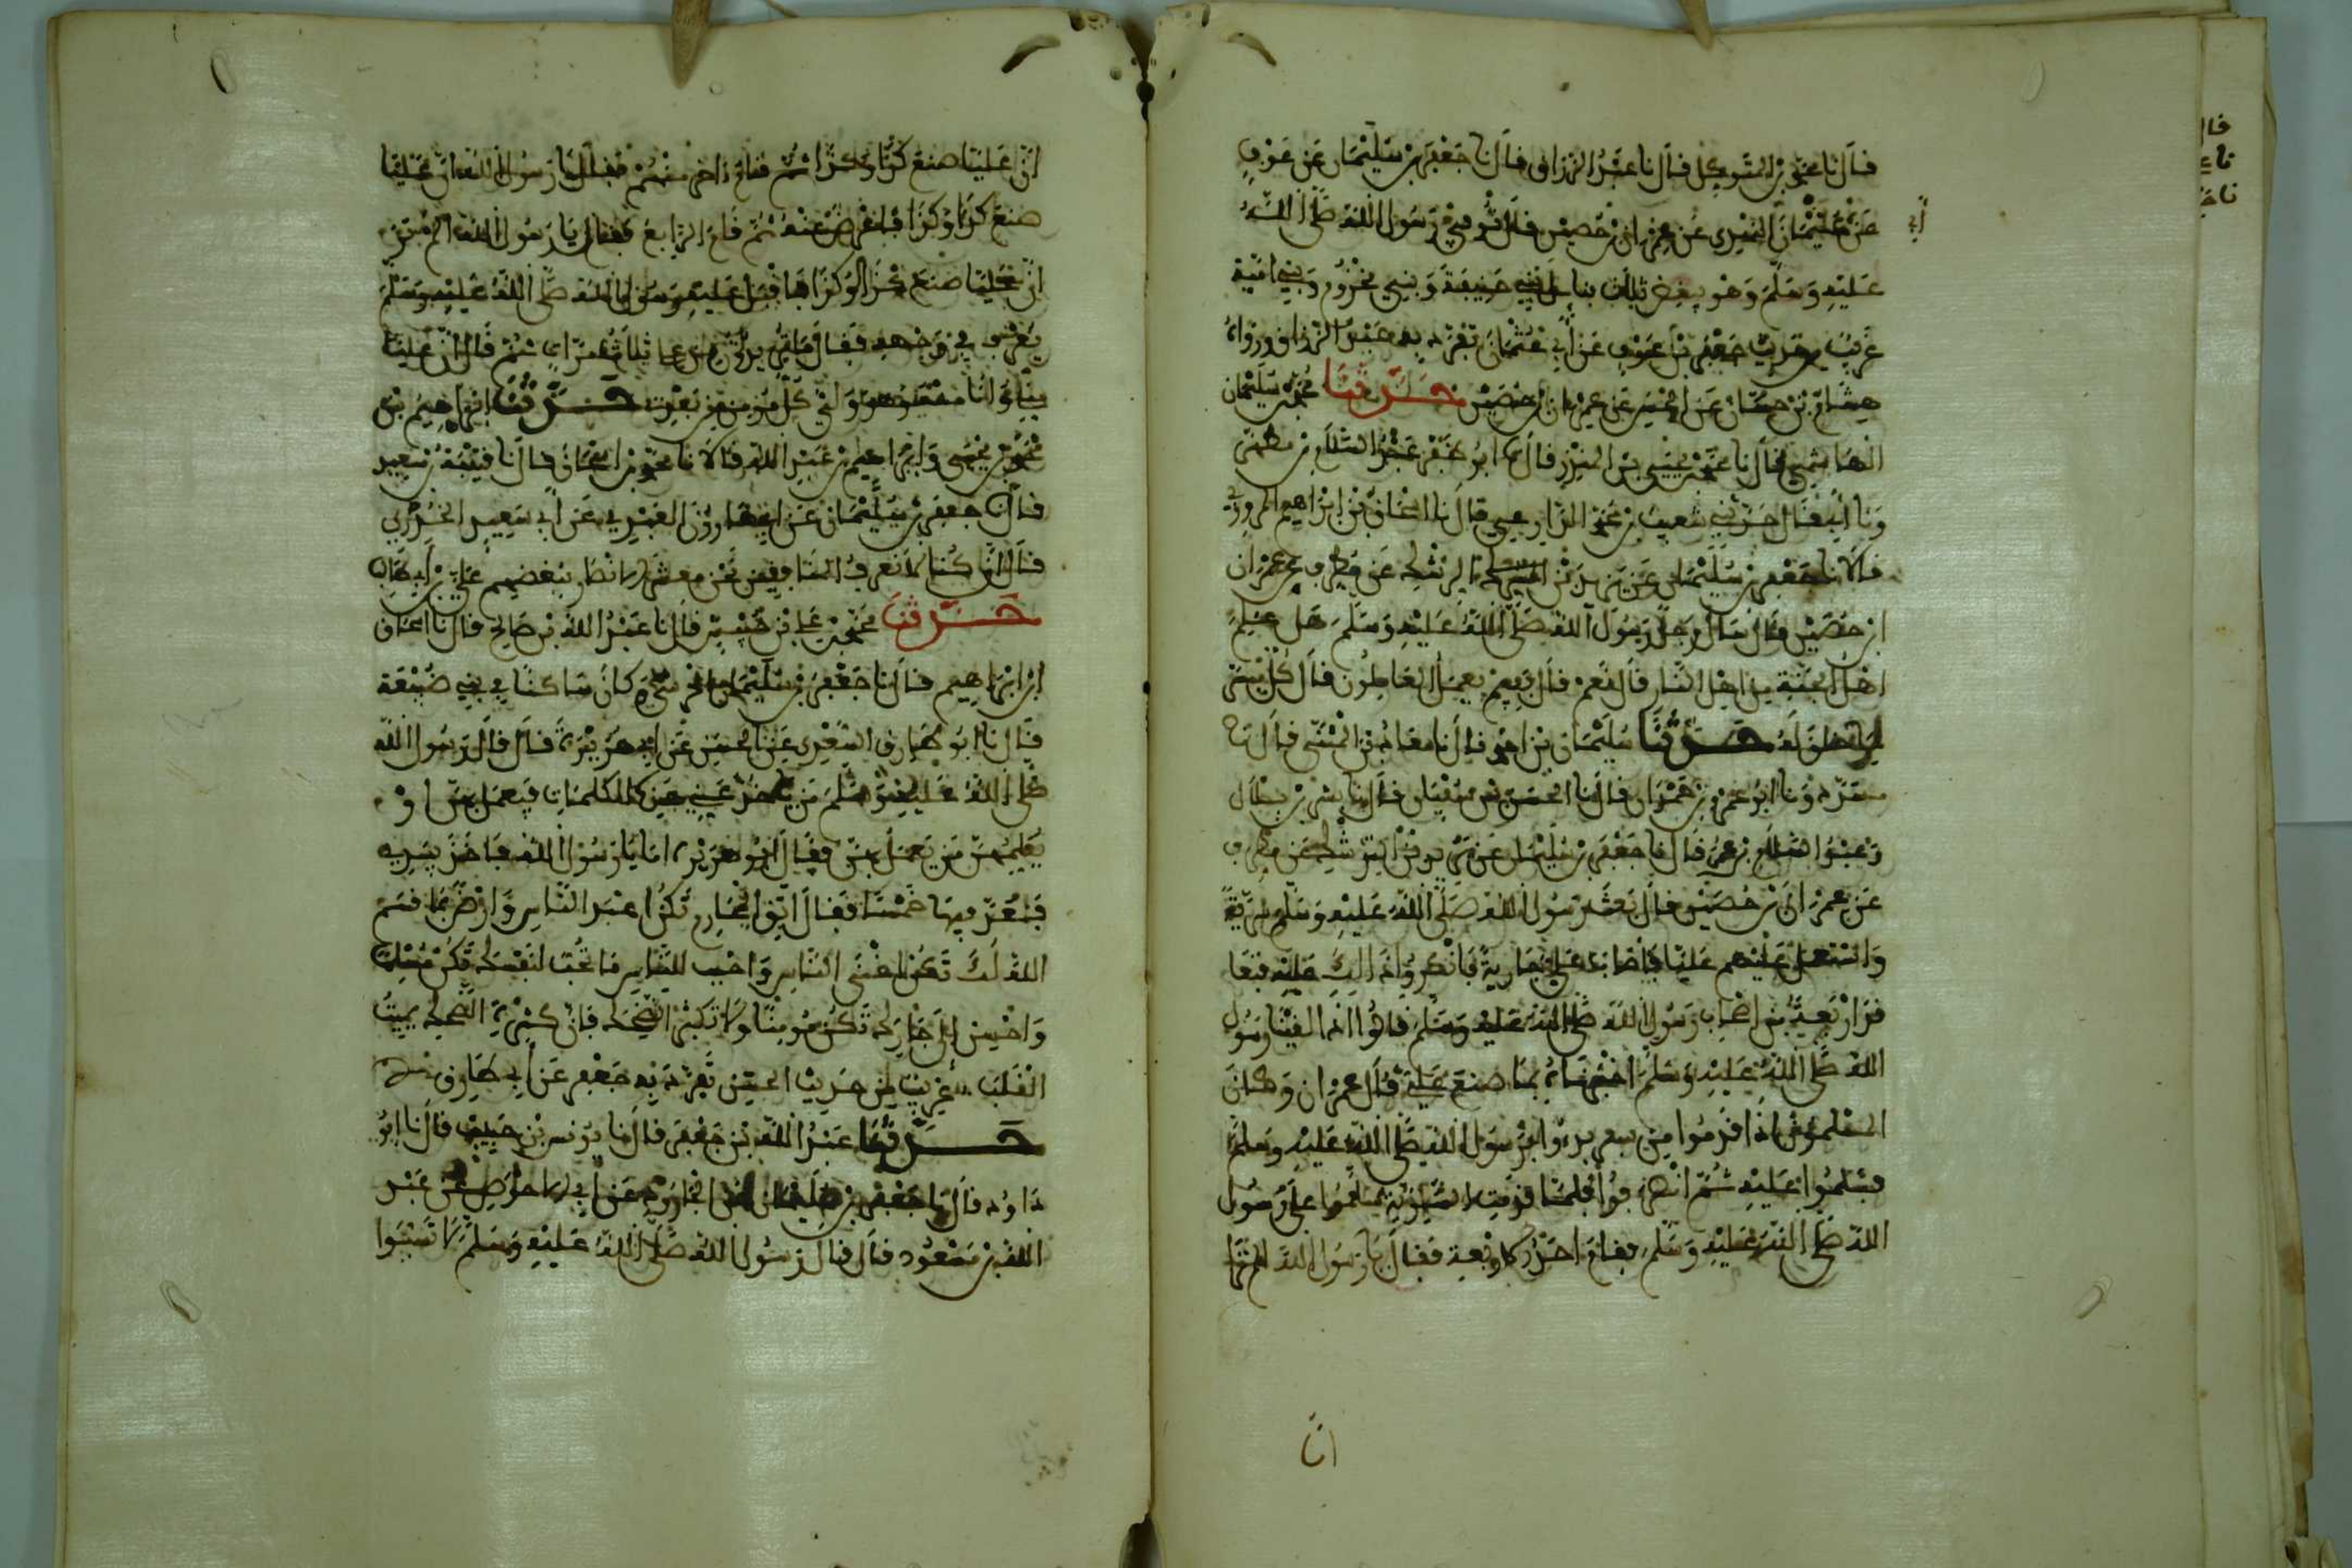 قال نا محمد بن المتوكل قال نا عبد الرزاق قال نا جعفر بن سليمان عن عوف
عن عثمان النهدي عن عمران بن حصين قال توفي رسول الله صلى الله
أبي
عليه وسلم وهو يبغض ثلاث بني حنيفة وبني مخزوم وبني امية
غريب من حديث جعفر بن عوف عن أبي عثمان تفرد به عبد الرزاق ورواه
هشام بن حسان عن الحسن عن عمران بن حصين حدثنا محمد بن سليمان
الهاشمي قال نا محمد بن يحيى بن المنذر قال نا ابو ظفر عبد السلام بن مطهر
ونا أبي قال حدثني شعيب بن محمد الذارعي قال نا اسحاق بن ابراهيم المروزي
قالا نا جعفر بن سليمان عن يزيد الرشك عن مطرف عن عمران
ابن حصين قال سأل رجل رسول الله صلى الله عليه وسلم هل علم
اهل الجنة من اهل النار قال نعم قال ففيم يعمل العاملون قال كل ميسر
لما خلق له حدثنا سليمان بن احمد قال نا معاذ بن المثنى قال نا
مسدد ونا ابو عمرو بن حمدان قال نا الحسن بن سفيان قال نا بشر بن هلال
وعبد السلام بن عمر قال نا جعفر بن سليمان عن يزيد الرشك عن مطرف
عن عمران بن حصين قال بعث رسول الله صلى الله عليه وسلم سرية
واستعمل عليهم عليا فاصاب علي جارية فانكروا ذلك عليه فتعا
قد اربعة من اصحاب رسول الله صلى الله عليه وسلم قالوا اذا لقينا رسول
الله صلى الله عليه وسلم اخبرناه بما صنع علي قال عمران وكان
المسلمون اذا قدموا من سفر بدوا برسول الله صلى الله عليه وسلم
فسلموا عليه ثم انصرفوا فلما قدمت السرية سلموا على رسول
الله صلى الله عليه وسلم فقام احد الاربعة فقال يا رسول الله الم تر
ان
ان عليا صنع كذا وكذا ثم قام اخر منهم فقال يا رسول الله ان عليا
صنع كذا وكذا فاعرض عنه ثم قام الرابع فقال يا رسول الله الم تر
ان عليا صنع كذا وكذا فاقبل عليه رسول الله صلى الله عليه وسلم
يعرف في وجهه فقال ما تريدون من علي ثلاث مرات ثم قال ان عليا
مني وانا منه وهو ولي كل مومن من بعدي حدثنا ابراهيم بن
محمد بن يحيى وابراهيم بن عبد الله قالا نا محمد بن اسحاق قال نا قتيبة بن سعيد
قال نا جعفر بن سليمان عن ابي هارون العبدي عن أبي سعيد الخدري
قال انا كنا لنعرف المنافقين نحن معشر الانصار ببغضهم علي بن أبي طالب
حدثنا محمد بن علي بن حبيش قال نا عبد الله بن صالح قال نا اسحاق
ابن ابراهيم قال نا جعفر بن سليمان كان ساكنا في بني ضبيعة
قال نا ابو طارق السعدي عن الحسن عن ابي هريرة قال قال رسول الله
صلى الله عليه وسلم من ياخذ عني هذه الكلمات فيعمل بهن او
يعلمهن من يعمل بهن فقال ابو هريرة انا يا رسول الله فاخذ بيدي
فعد فيها خمسا فقال اتق المحارم تكن اعبد الناس وارض بما قسم
الله لك تكن اغنى الناس واحب للناس ما تحب لنفسك تكن مسلما
واحسن الى جارك تكن مومنا ولا تكثر الضحك فان كثرة الضحك يميت
القلب غريب من حديث الحسن تفرد به جعفر عن أبي طارق
حدثنا عبد الله بن جعفر قال نا يونس بن حبيب قال نا ابو
داود قال نا جعفر بن سليمان عن الجارود عن أبي الاحوص عن عبد
الله بن مسعود قال قال رسول الله صلى الله عليه وسلم لا تسبوا
قال